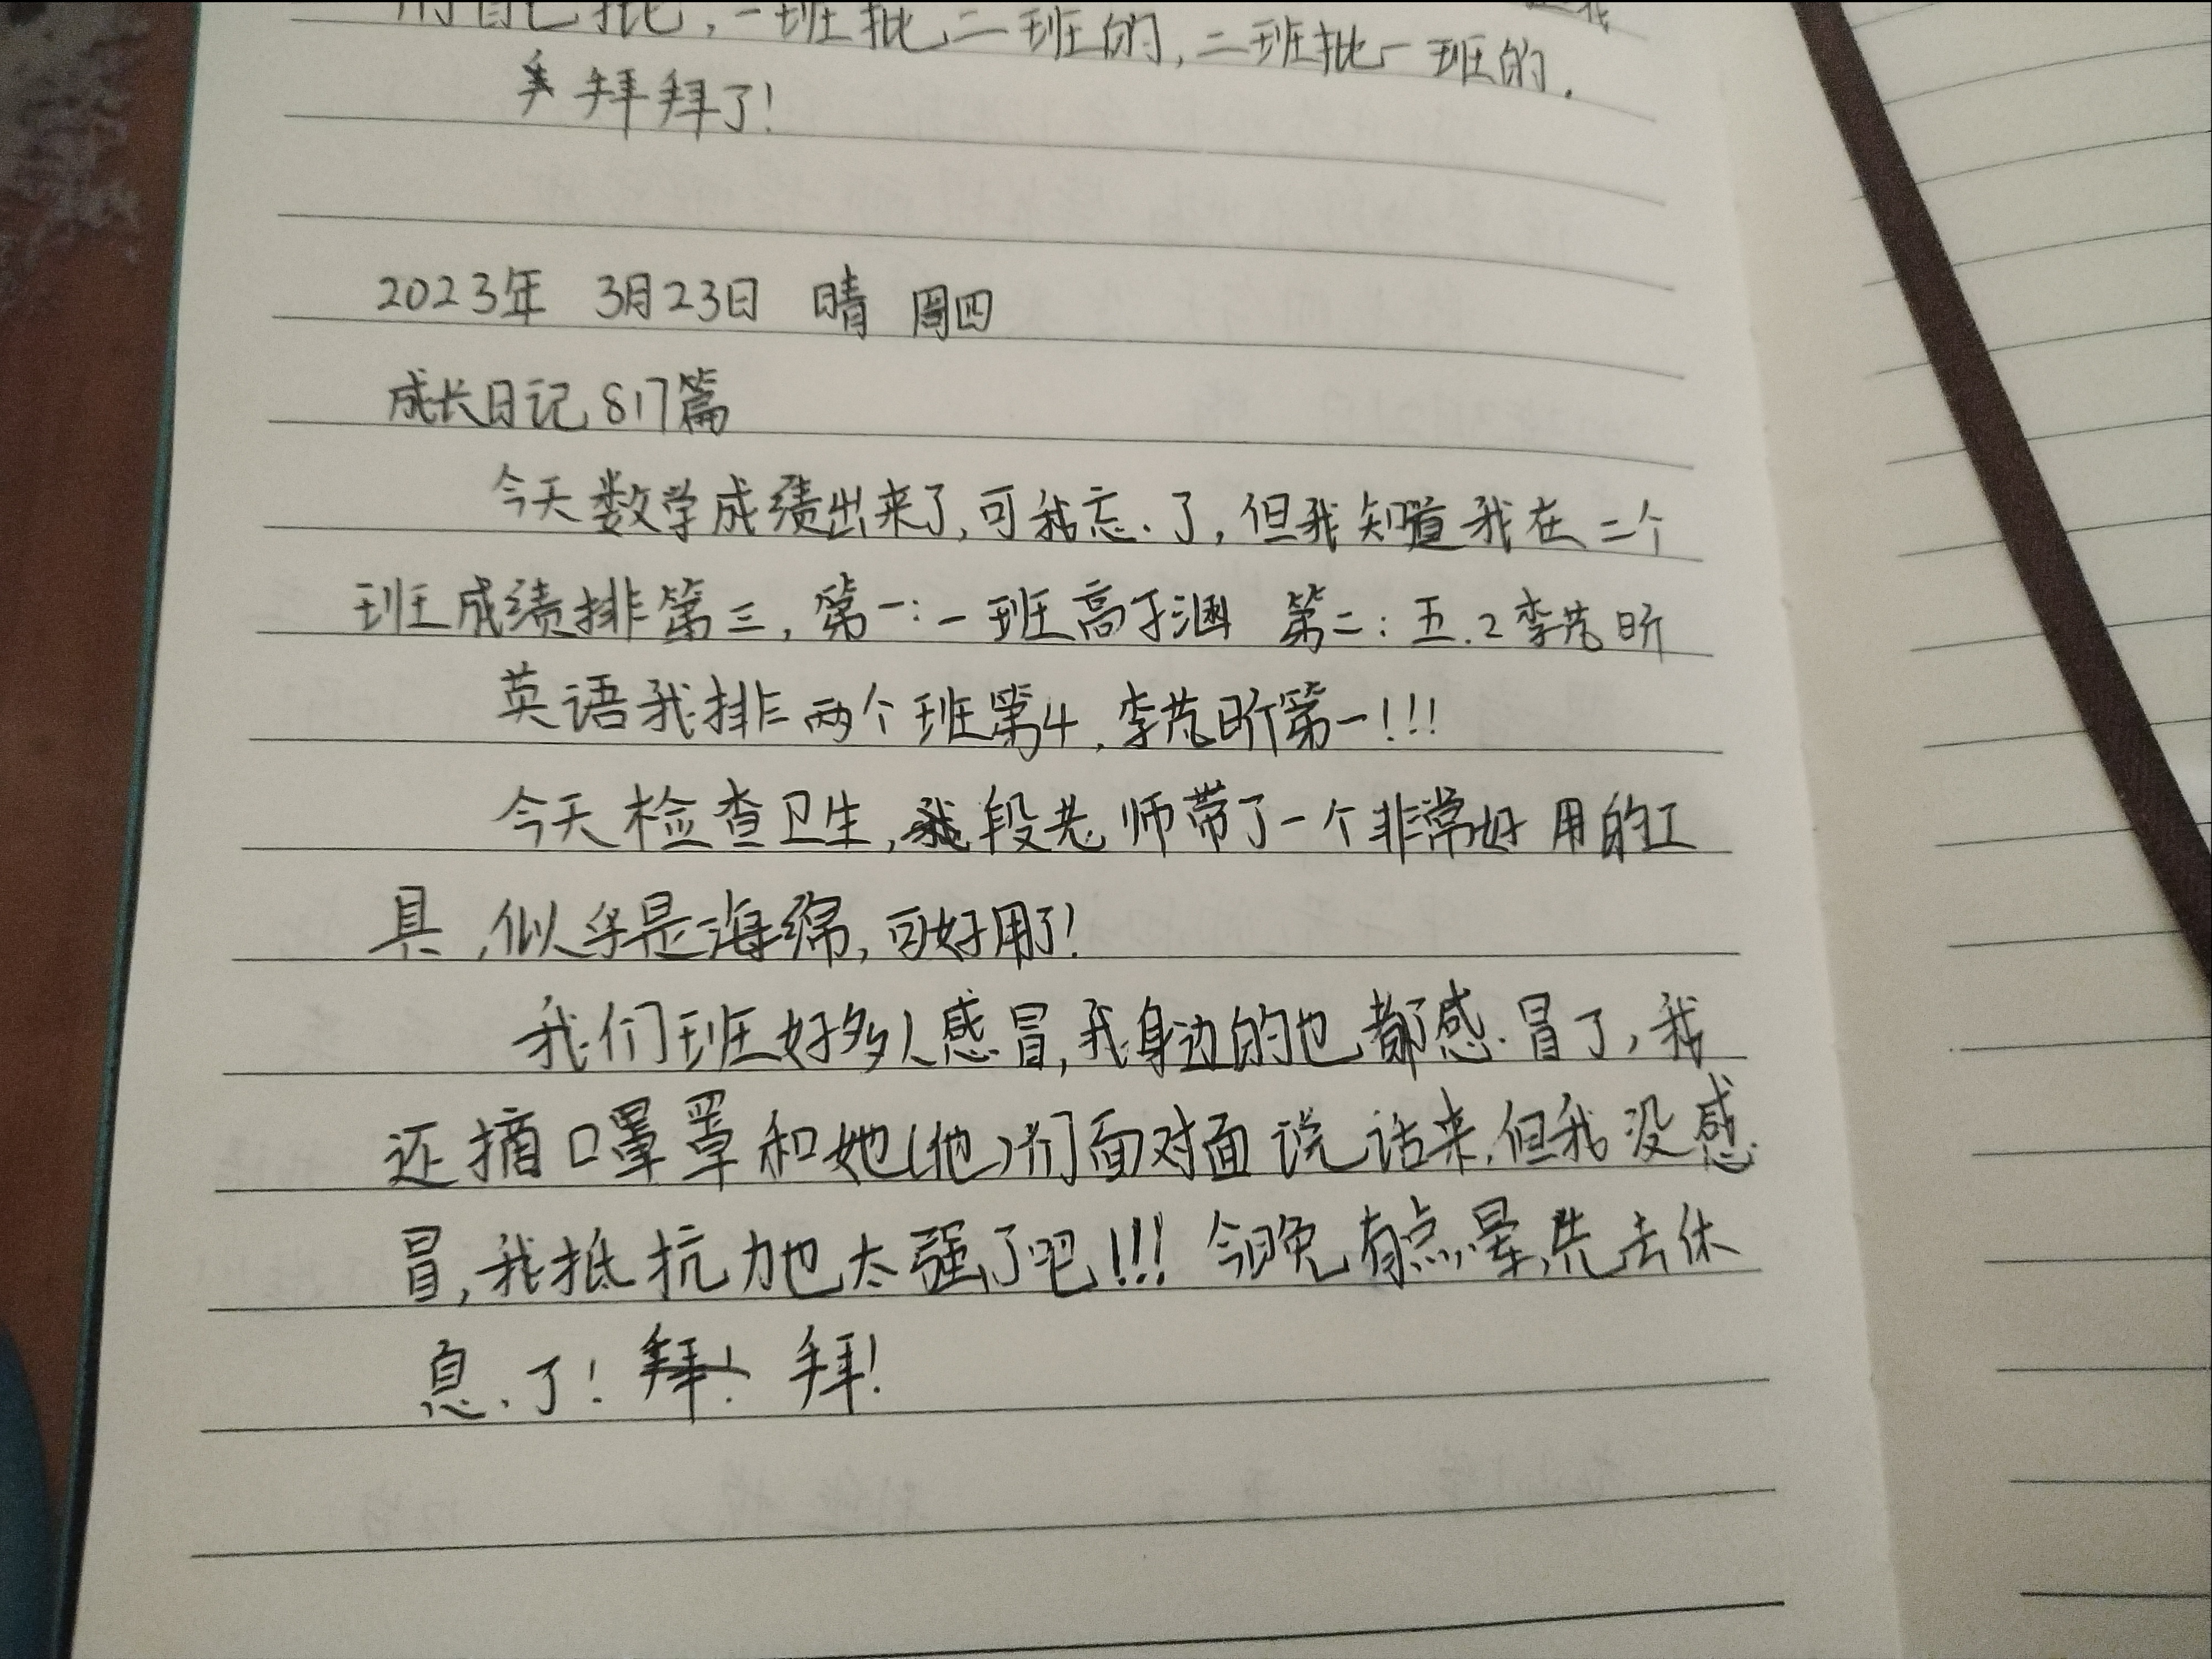 自己批，一班批二班的，二班批一班的．
拜拜了！
2023年 3月23日 晴 周四
成长日记 817篇
今天数学成绩出来了，可我忘了，但我知道我在二个
班成绩排第三，第一：一班高于涵 第二：五.2李芃昕
英语我排两个班第4，李芃昕第一！！！
今天检查卫生，段老师带了一个非常好用的工
具，似乎是海绵，可好用了！
我们班好多人感冒，我身边的也都感冒了，我
还摘口罩罩和她（他）们面对面说话来，但我没感
冒，我抵抗力也太强了吧！！！今晚有点晕，先去休
息了！拜！